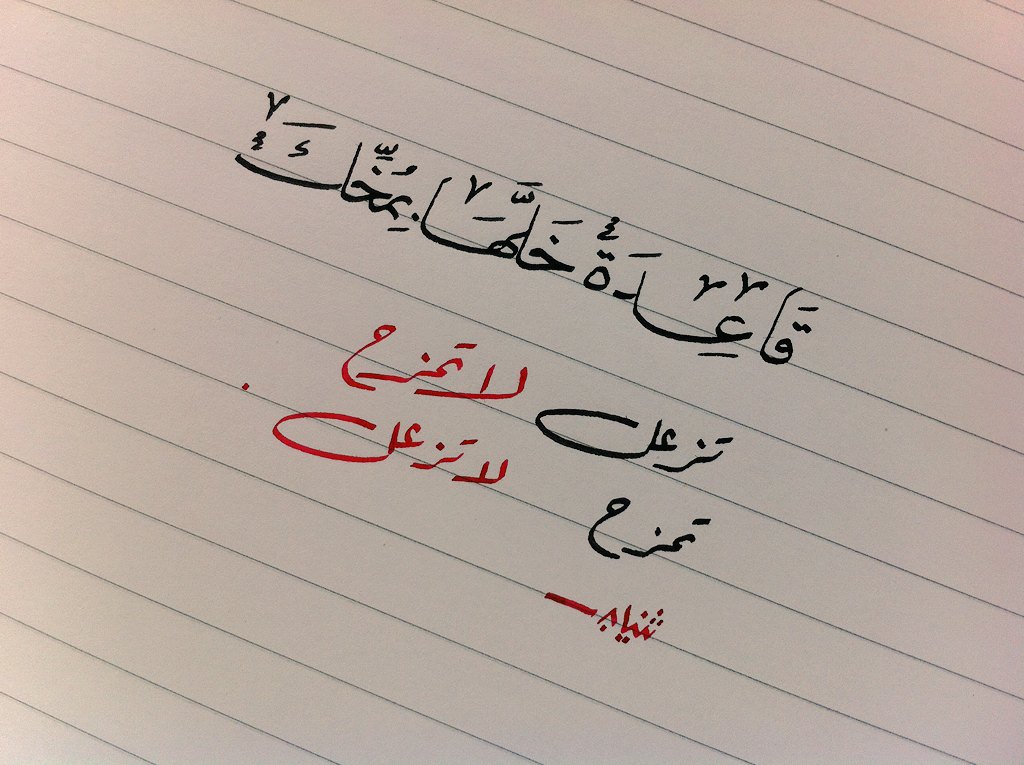 قَاعِدَة خَلَّهَا بِمُخَّكَ
تزعل لا تمزح
تمزح لا تزعل